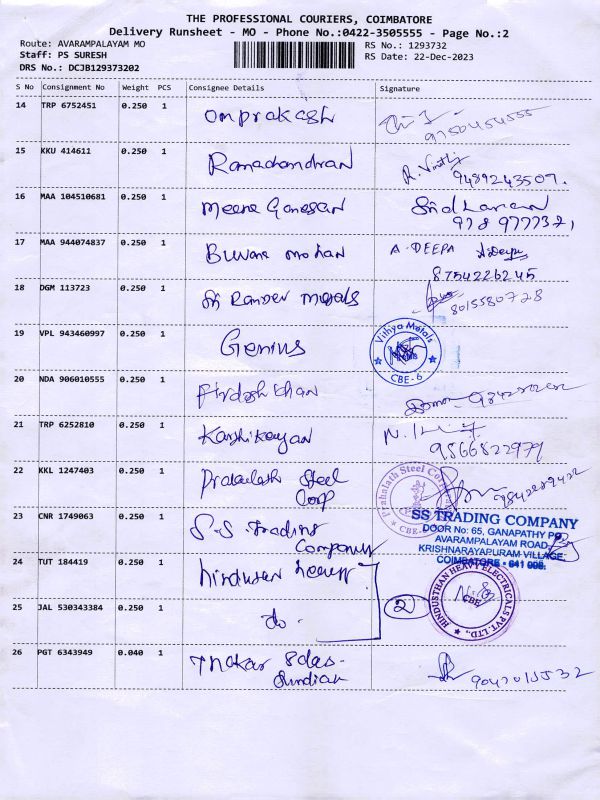 THE PROFESSIONAL COURIERS, COIMBATORE
Delivery Runsheet - MO - Phone No.:0422-3505555 - Page No.:2
Route: AVARAMPALAYAM MO
RS No.: 1293732
Staff: PS SURESH
RS Date: 22-Dec-2023
DRS No.: DCJB129373202
S No Consignment No Weight PCS Consignee Details Signature
14 TRP 6752451 0.250 1 Omprakash
9750454555
15 KKU 414611 0.250 1 Ramachandran R.
9489243507.
16 MAA 104510681 0.250 1 Meena Ganesan Sridharan
9789777371
17 MAA 944074837 0.250 1 Buvana mohan A. DEEPA
8754226245
18 DGM 113723 0.250 1 Sri metals
8015580728
19 VPL 943460997 0.250 1 Genius Vithya Metals
CBE-6
20 NDA 906010555 0.250 1 khan
21 TRP 6252810 0.250 1 Karthikeyan N.
9566822979
22 KKL 1247403 0.250 1 Steel Prahalath Steel
Corp CBE
23 CNR 1749063 0.250 1 S.S. Trading SS TRADING COMPANY
Company DOOR No: 65, GANAPATHY
AVARAMPALAYAM ROAD,
KRISHNARAYAPURAM VILLAGE,
COIMBATORE - 641 006.
24 TUT 184419 0.250 1 hindustan heavy HINDUSTHAN HEAVY ELECTRICALS PVT. LTD.,
CBE
25 JAL 530343384 0.250 1 do. 2
26 PGT 6343949 0.040 1